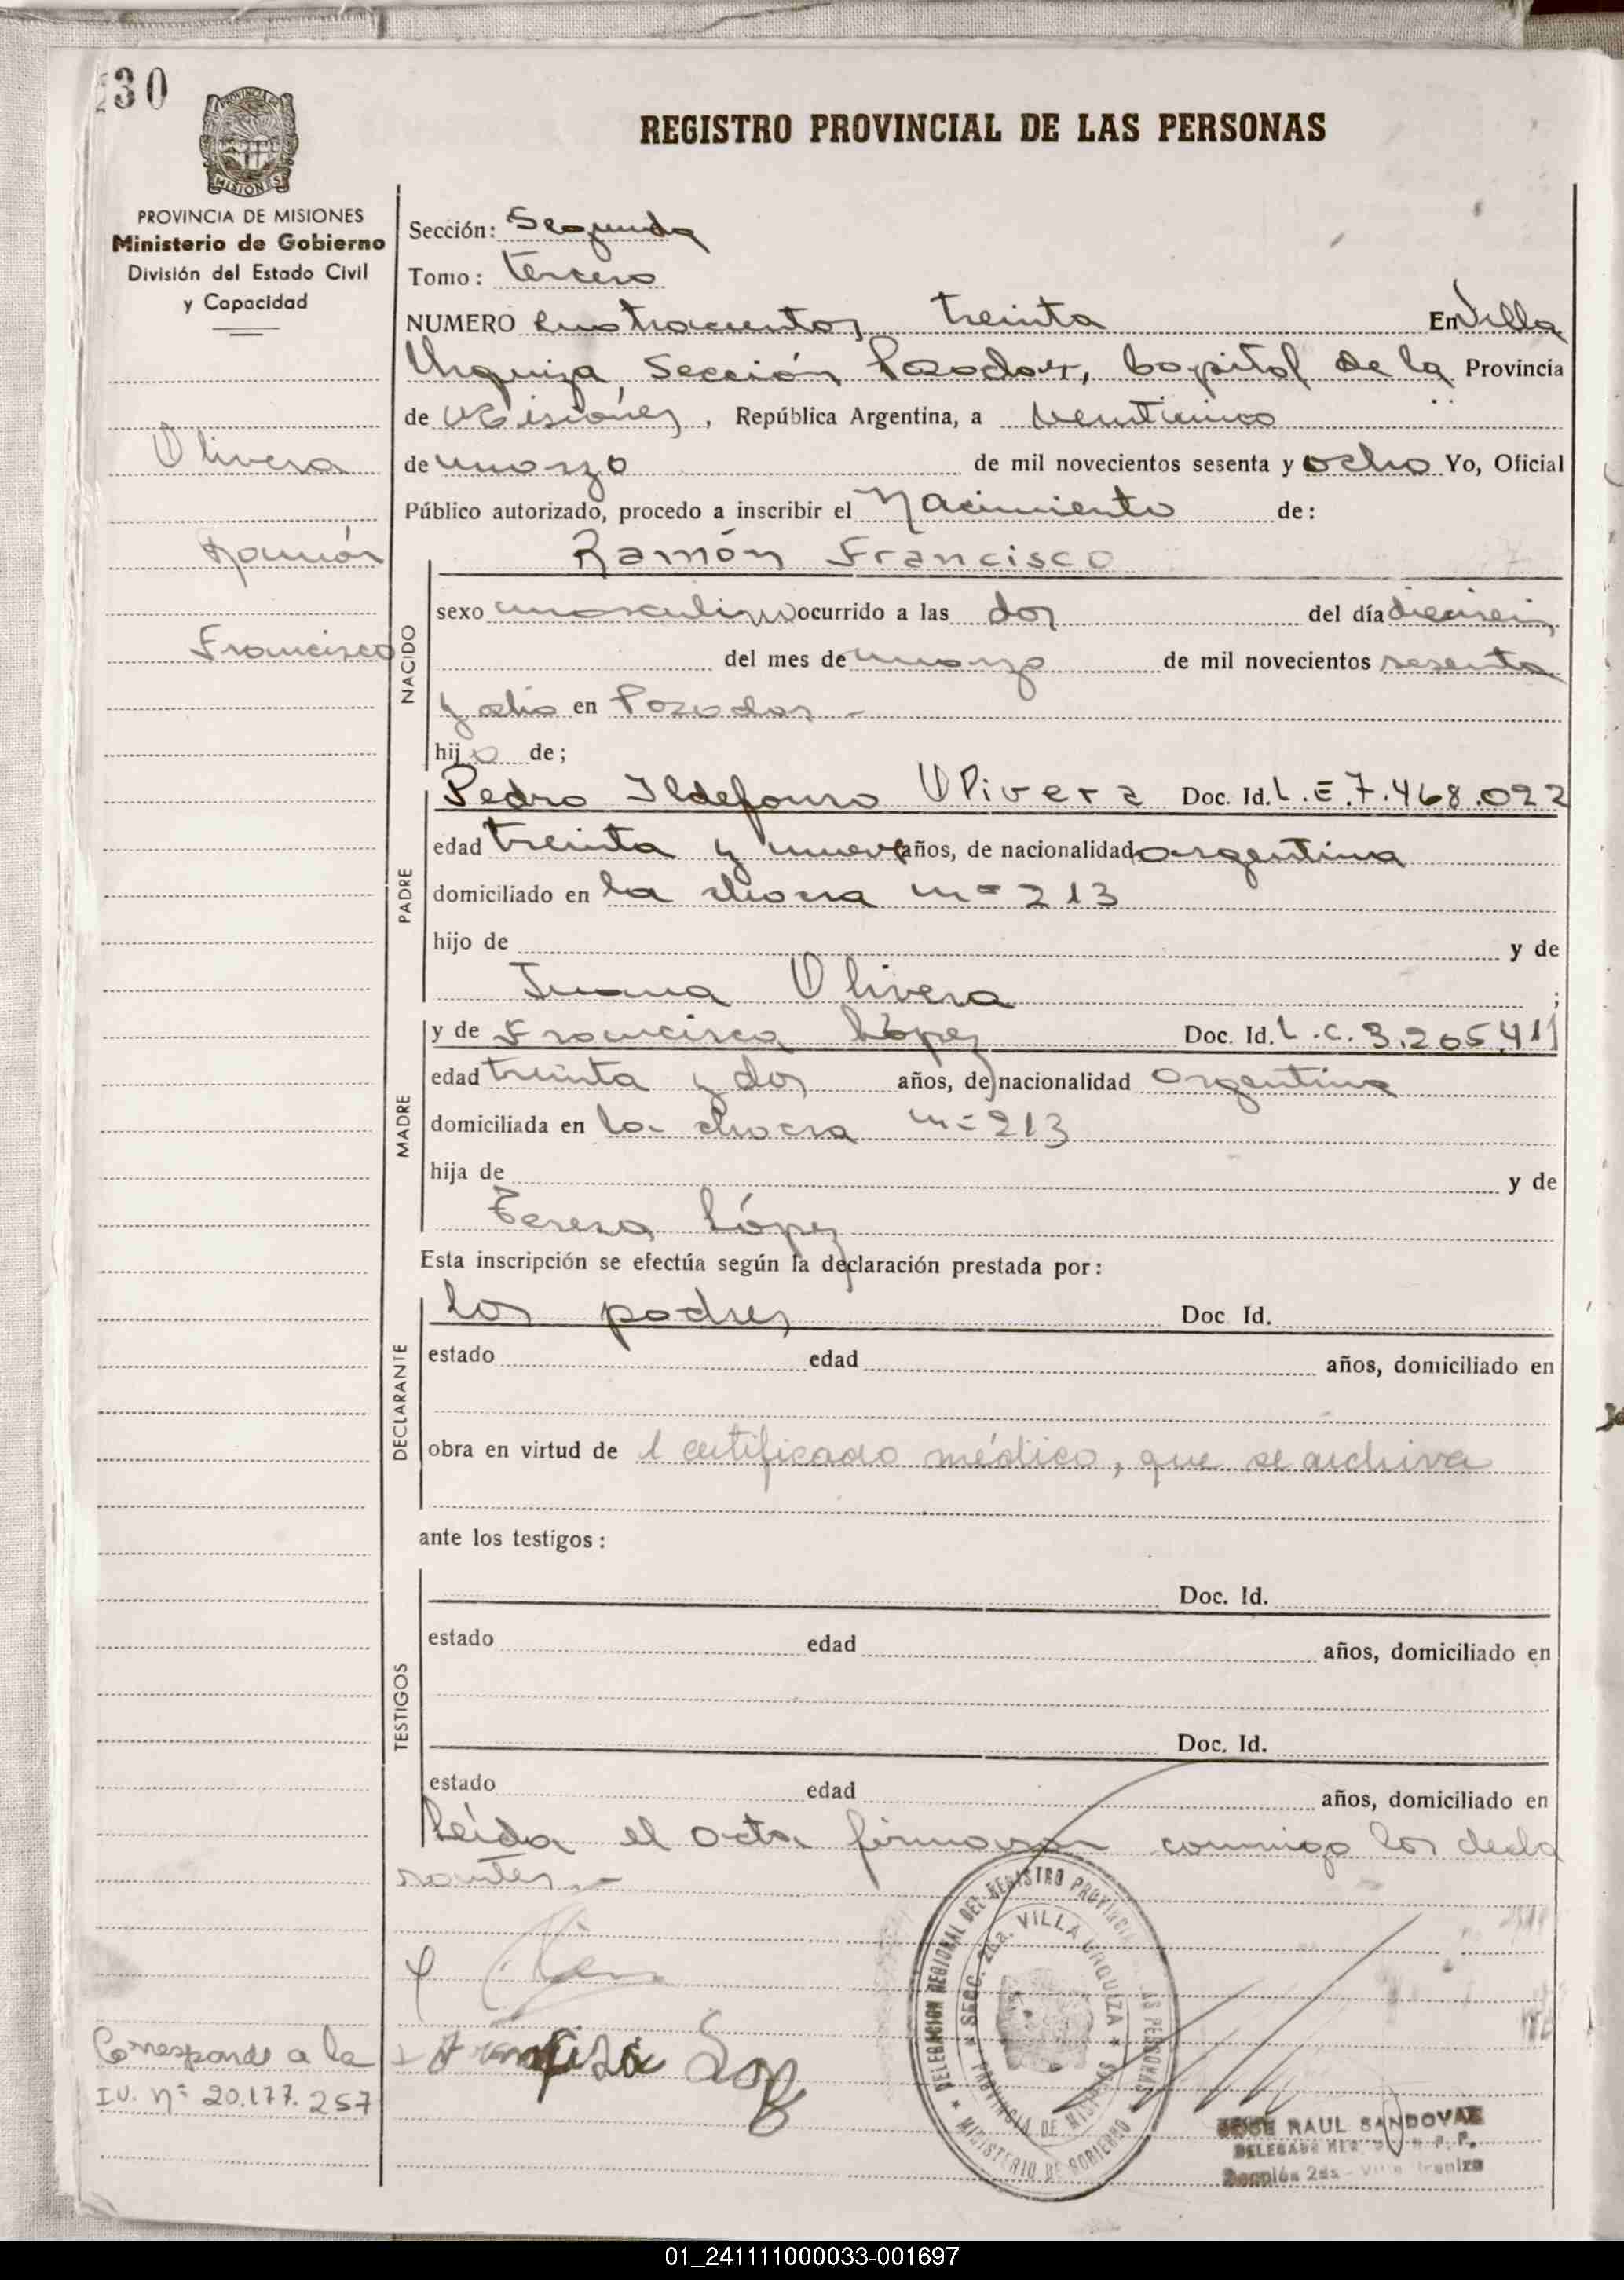 30
PROVINCIA DE
MISIONES
PROVINCIA DE MISIONES
Ministerio de Gobierno
División del Estado Civil
y Capacidad
Olivera
Ramón
Francisco
Corresponde a la
I.U. nº 20.177.257
REGISTRO PROVINCIAL DE LAS PERSONAS
Sección: Segunda
Tomo: tercero
NUMERO cuatrocientos treinta En Villa
Urquiza, Sección Posadas, Capital de la Provincia
de Misiones, República Argentina, a veinticinco
de marzo de mil novecientos sesenta y ocho Yo, Oficial
Público autorizado, procedo a inscribir el Nacimiento de:
NACIDO
Ramón Francisco
sexo masculino ocurrido a las dos del día dieciseis
del mes de marzo de mil novecientos sesenta
y ocho en Posadas -
hijo de;
PADRE
Pedro Ildefonso Olivera Doc. Id. L.E.7.468.022
edad treinta y nueve años, de nacionalidad argentina
domiciliado en la chacra nº 213
hijo de y de
Juana Olivera ;
MADRE
y de Francisca López Doc. Id. L.C. 3.205.411
edad treinta y dos años, de nacionalidad argentina
domiciliada en la chacra nº 213
hija de y de
Teresa López
Esta inscripción se efectúa según la declaración prestada por:
DECLARANTE
los padres Doc Id.
estado edad años, domiciliado en
obra en virtud de l certificado médico, que se archiva
ante los testigos:
TESTIGOS
Doc. Id.
estado edad años, domiciliado en
Doc. Id.
estado edad años, domiciliado en
Leída el acta firmaron conmigo los decla
rantes.-
DELEGACION REGIONAL DEL REGISTRO PROVINCIAL LAS PERSONAS
SECC. 2da. VILLA URQUIZA
PROVINCIA DE MISIONES
MINISTERIO DE GOBIERNO
JOSE RAUL SANDOVAL
Sección 2da - Villa Urquiza
01_241111000033-001697